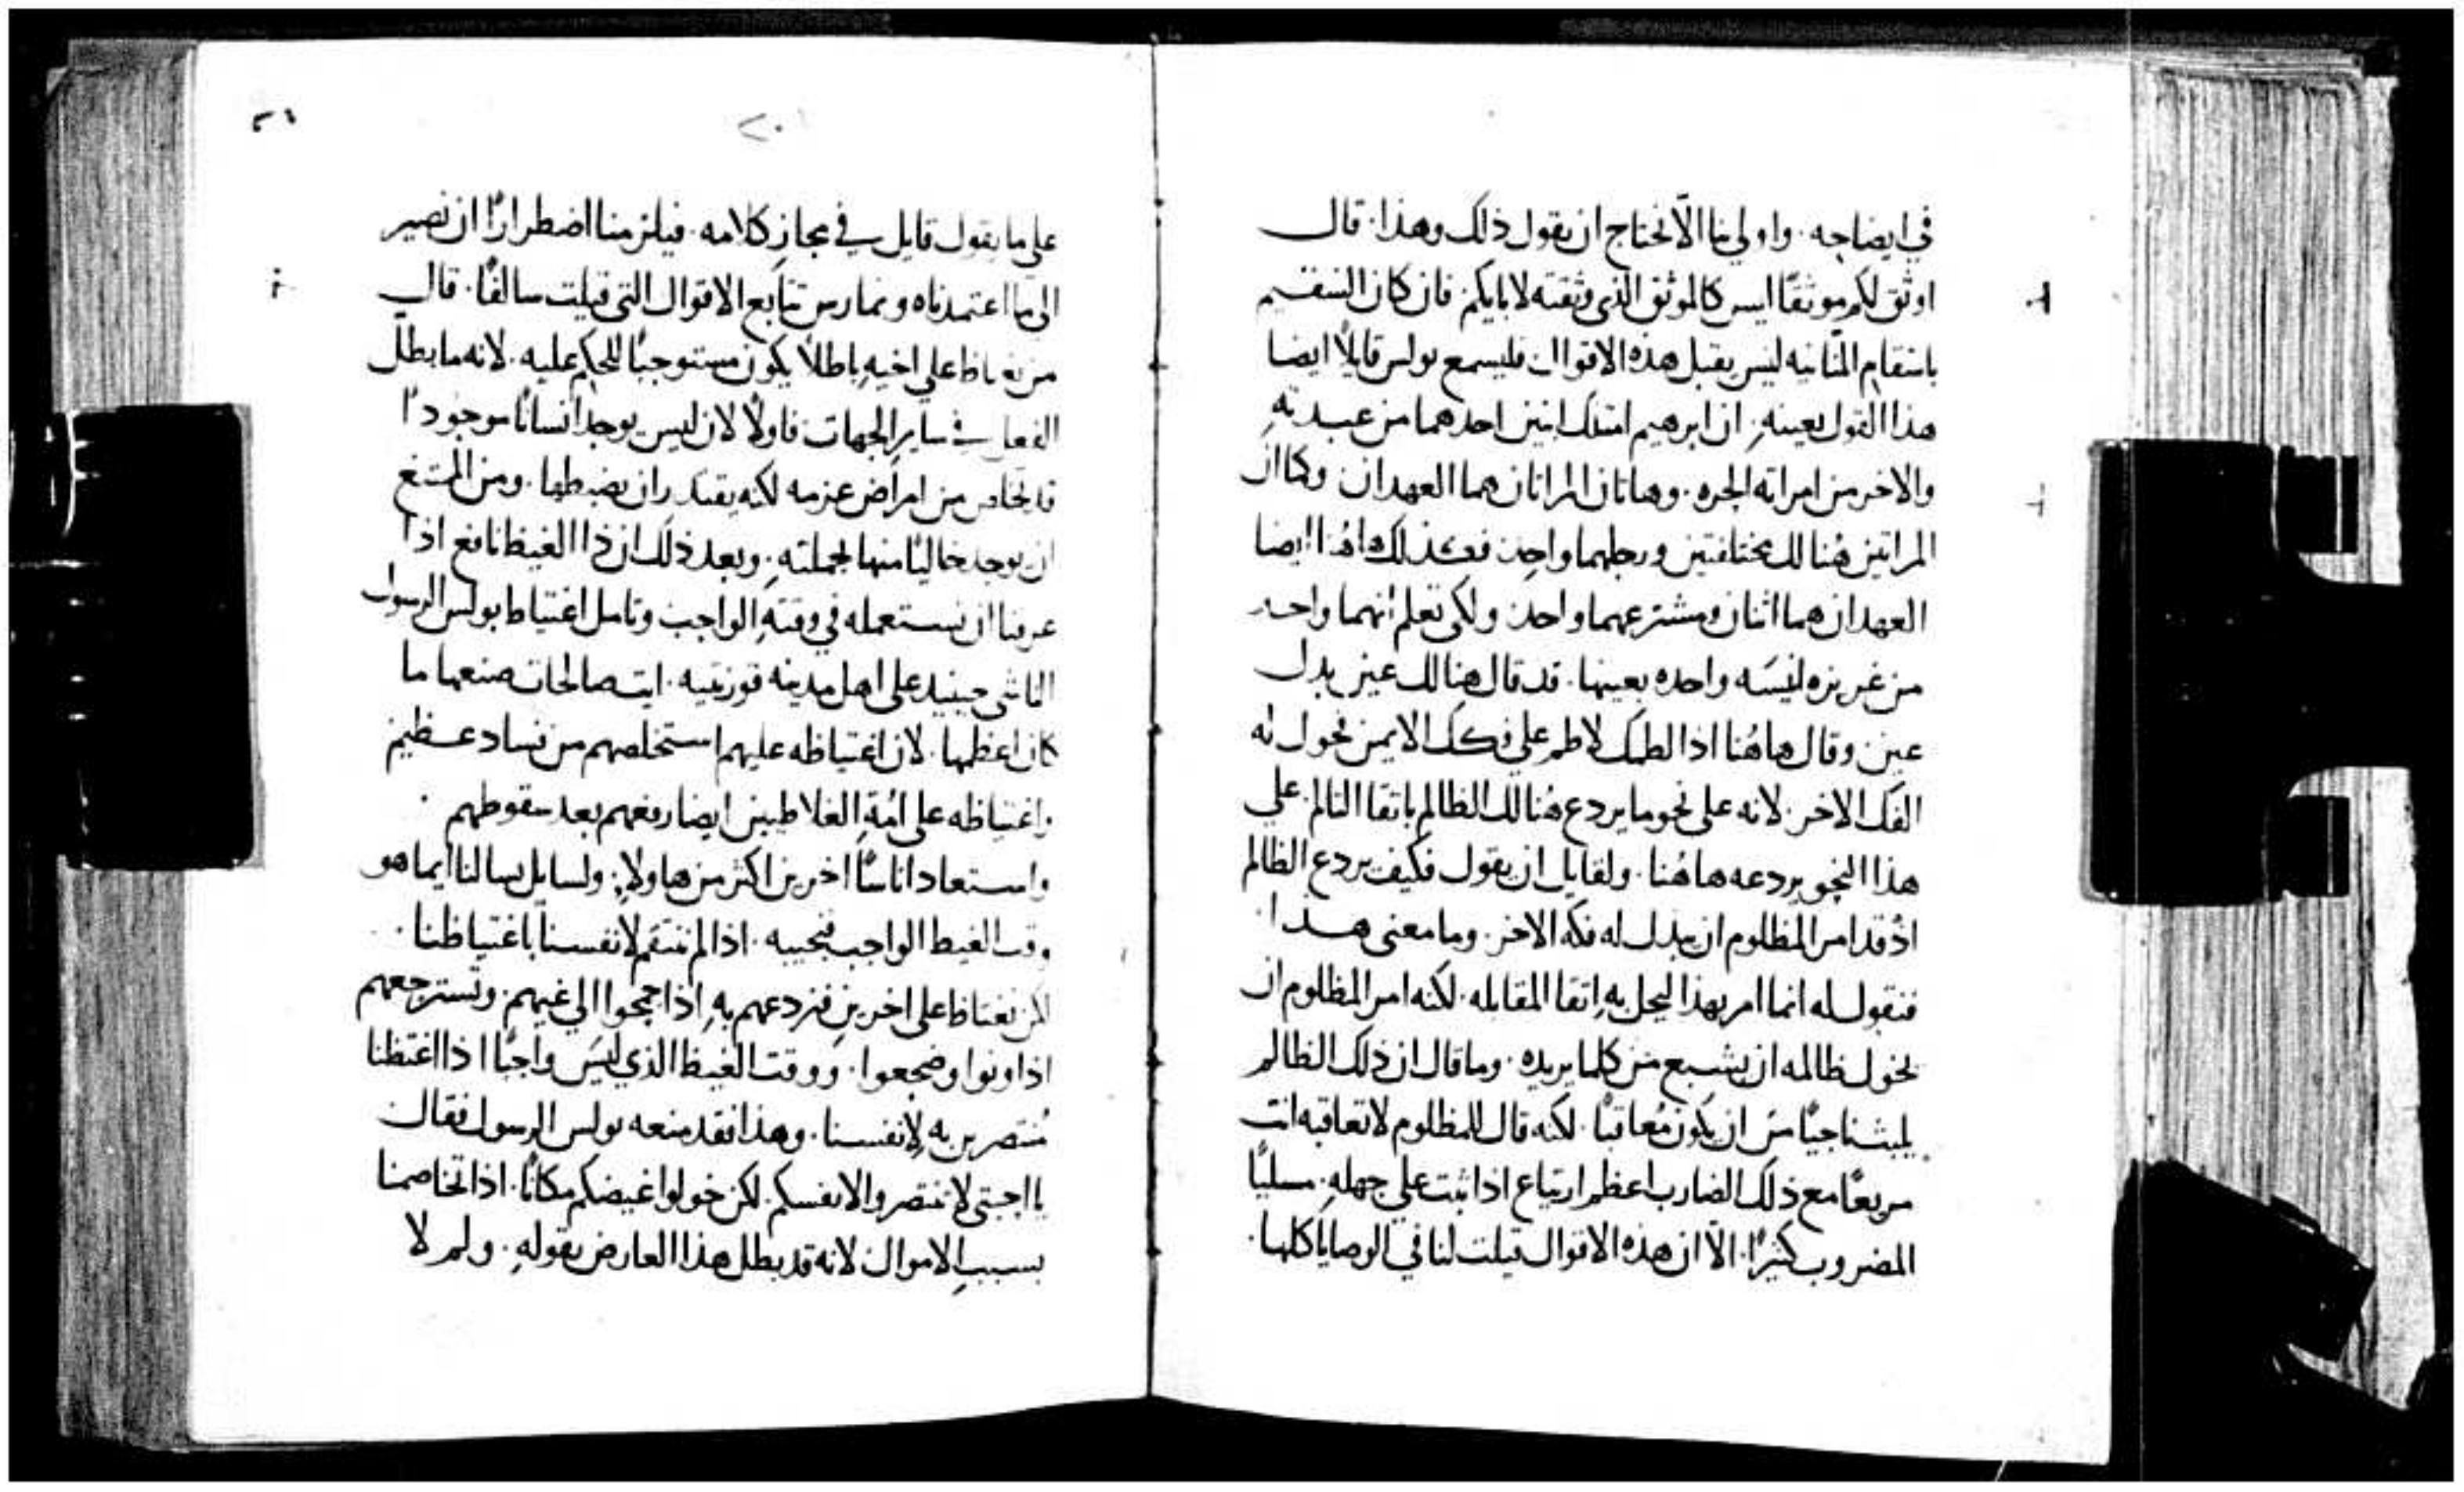 في ايضاحه · واولي بنا الّا نحتاج ان يقول ذلك وهذا · قال
اوثق لكم موثقًا ليس كالموثق الذي وثقته لابايكم فان كان السقيم
باسقام المنانيه ليس يقبل هذه الاقوال فليسمع بولس قايلًا ايضا
هذا القول بعينهِ · ان ابرهيم امتلك ابنين احدهما من عبدتهِ
والاخر من امراته الحره · وهاتان المراتان هما العهدان وكما ان
المراتين هُنالك مختلفتين ورجلهما واحد فكذلك هاهُنا ايضا
العهدان هما اثنان ومشترعهما واحد ولكي تعلم انهما واحد
من غريزه انيسَه واحده بعينها · قد قال هنالك عين بدل
عين وقال هاهُنا اذا لطمك لاطم علي فكك الايمن فحول له
الفك الاخر · لانه علي نحو ما يردع هُنالك الظالم باتقا التالم علي
هذا النحو يردعه هاهُنا · ولقايل ان يقول فكيف يردع الظالم
اذ قد امر المظلوم ان يبدل له فكه الاخر · وما معني هذا ·
فنقول له انما امر بهذا ليحل بهِ اتقا المقابله · لكنه امر المظلوم ان
يخول ظالمه ان يشبع من كلما يريده · وما قال ان ذلك الظالم
يلبث ناجيًا من ان يكون مُعاقبًا · لكنه قال للمظلوم لا تعاقبه انت
مريعًا مع ذلك الضارب اعظم ارتياع اذا ثبت علي جهلهِ · مسليًا
المضروب كثيرًا · الّا ان هذه الاقوال قيلت لنا في الوصايا كلها ·
٢٠١
علي ما يقول قايل في مجاز كلامه · فيلزمنا اضطرارًا ان نصير
الي ما اعتمدناه ونمارس تتابع الاقوال التي قيلت سالفًا · قال
من يغتاظ علي اخيهِ باطلًا يكون مستوجبًا للحكم عليه · لانه ما بطل
الفعل في ساير الجهات فاولًا لان ليس يوجد انسانًا موجودًا
قد تخلص من امراض عزمه لكنه يقتدر ان يضبطها · ومن الممتنع
ان يوجد خاليًا منها بجملتهِ · وبعد ذلك ان ذا الغيظ نافع اذا
عرفنا ان نستعمله في وقتهِ الواجب وتامل اغتياظ بولس الرسول
الناشي حينيد علي اهل مدينه قورنتيه · ايت صالحات صنعها ما
كان اعظمها · لان اغتياظه عليهم استخلصهم من فساد عظيم
واغتياظه علي امُةِ الغلاطيين ايضا رفعهم بعد سقوطهم ·
واستعاد اناسًا اخرين اكثر من هاولاءِ · ولسايل يسالنا ايما هو
وقت الغيظ الواجب فنجيبه · اذا لم ننتقم لانفسنا باغتياظنا ·
لكن نغتاظ علي اخرين فنردعهم بهِ اذا جمحوا الي غيهم · ونسترجعهم
اذا ونوا وضجعوا · ووقت الغيظ الذي ليسَ واجبًا اذا اغتظنا
مُنتصرين به لانفسنا · وهذا فقد منعه بولس الرسول فقال
يا احبتي لا تنتصروا لانفسكم · لكن خولوا غيضكم مكانًا · اذا تخاصمنا
بسببِ الاموال لانه قد بطل هذا العارض بقولهِ · ولم لا